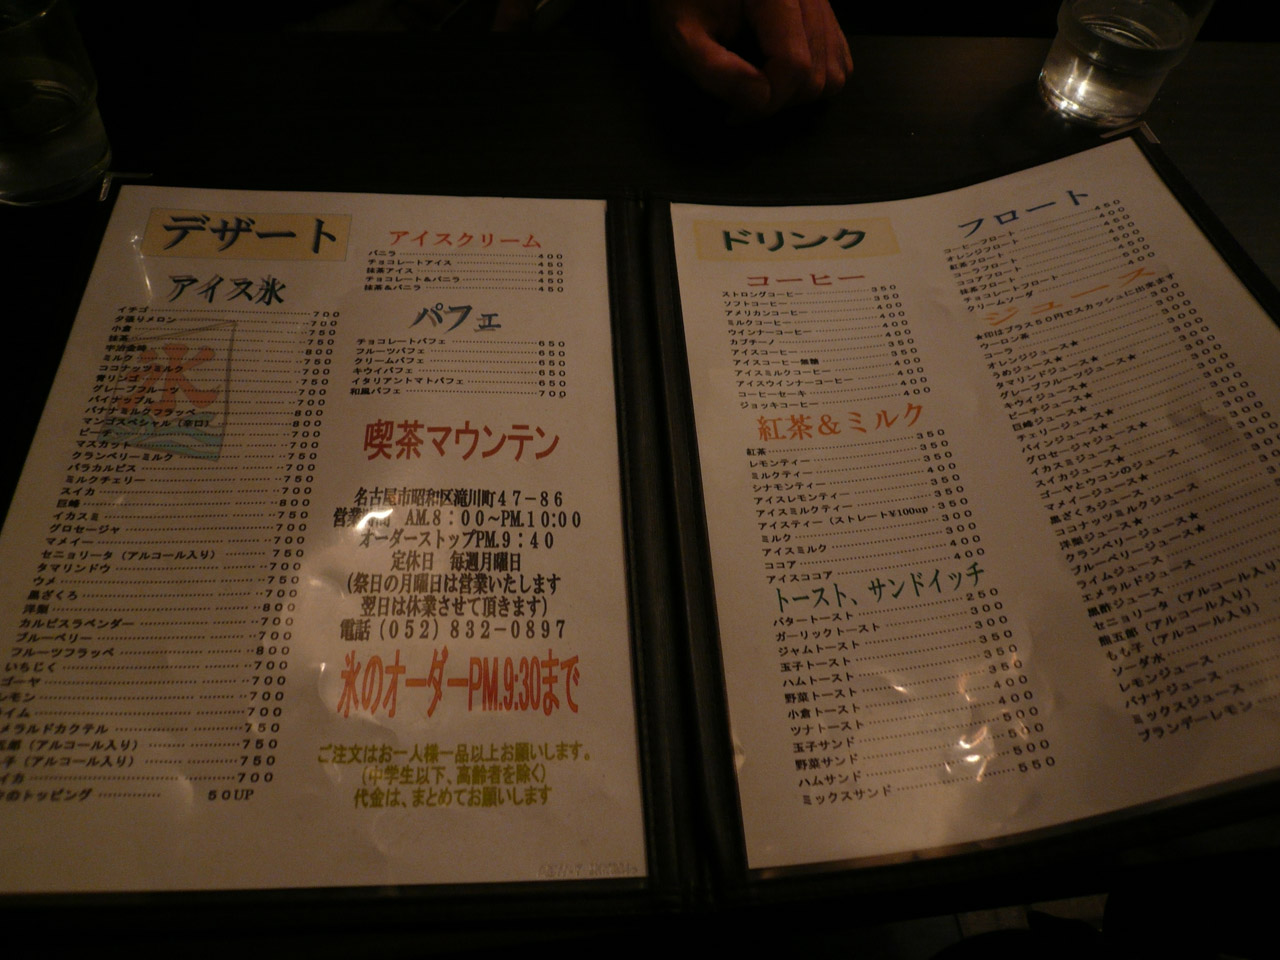 デザート
アイス氷
イチゴ 700
夕張りメロン 700
小倉 750
抹茶 750
宇治金時 800
ミルク 750
ココナッツミルク 700
青リンゴ 750
グレープフルーツ 700
パイナップル 700
バナナミルクフラッペ 800
マンゴスペシャル(辛口) 800
ピーチ 700
マスカット 700
クランベリーミルク 750
パラカルピス 700
ミルクチェリー 750
スイカ 700
巨峰 800
イカスミ 700
グロセージャ 700
マメイー 700
セニョリータ(アルコール入り) 750
タマリンドウ 700
ウメ 750
黒ざくろ 700
洋梨 800
カルピスラベンダー 700
ブルーベリー 700
フルーツフラッペ 800
いちじく 700
ゴーヤ 700
レモン 700
イム 700
メラルドカクテル 750
郎(アルコール入り) 750
子(アルコール入り) 750
イカ 700
のトッピング 50UP
アイスクリーム
バニラ 400
チョコレートアイス 450
抹茶アイス 450
チョコレート&バニラ 450
抹茶&バニラ 450
パフェ
チョコレートパフェ 650
フルーツパフェ 650
クリームパフェ 650
キウイパフェ 650
イタリアントマトパフェ 650
和風パフェ 700
喫茶マウンテン
名古屋市昭和区滝川町47-86
営業時間 AM.8:00~PM.10:00
オーダーストップPM.9:40
定休日 毎週月曜日
(祭日の月曜日は営業いたします
翌日は休業させて頂きます)
電話(052)832-0897
氷のオーダーPM.9:30まで
ご注文はお一人様一品以上お願いします。
(中学生以下、高齢者を除く)
代金は、まとめてお願いします
ドリンク
コーヒー
ストロングコーヒー 350
ソフトコーヒー 350
アメリカンコーヒー 400
ミルクコーヒー 400
ウインナーコーヒー 400
カプチーノ 400
アイスコーヒー 350
アイスコーヒー無糖 350
アイスミルクコーヒー 400
アイスウインナーコーヒー 400
コーヒーセーキ 400
ジョッキコーヒー 400
紅茶&ミルク
紅茶 350
レモンティー 350
ミルクティー 350
シナモンティー 400
アイスレモンティー 350
アイスミルクティー 350
アイスティー(ストレート¥100up) 350
ミルク 350
アイスミルク 350
ココア 400
アイスココア 400
トースト、サンドイッチ
バタートースト 250
ガーリックトースト 300
ジャムトースト 300
玉子トースト 350
ハムトースト 350
野菜トースト 350
小倉トースト 400
ツナトースト 400
玉子サンド 500
野菜サンド 500
ハムサンド 500
ミックスサンド 550
フロート
コーヒーフロート 450
オレンジフロート 400
紅茶フロート 450
コーラフロート 400
ココアフロート 450
抹茶フロート 450
チョコレートフロート 450
クリームソーダ 400
ジュース
★印はプラス50円でスカッシュに出来ます
ウーロン茶 300
コーラ 300
オレンジジュース★ 300
うめジュース★
タマリンドジュース★
グレープフルーツジュース★
キウイジュース★
ピーチジュース★
巨峰ジュース★
チェリージュース★
パインジュース★
グロセージャジュース★
イカスミジュース
スイカジュース★
ゴーヤとウコンのジュース
マメイージュース★
黒ざくろジュース
ココナッツミルクジュース
洋梨ジュース★
クランベリージュース★
ブルーベリージュース★
ライムジュース
エメラルドジュース
黒酢ジュース
セニョリータ(アルコール入り)
熊五郎(アルコール入り)
もも子(アルコール入り)
ソーダ水
レモンジュース
バナナジュース
ミックスジュース
ブランデーレモン